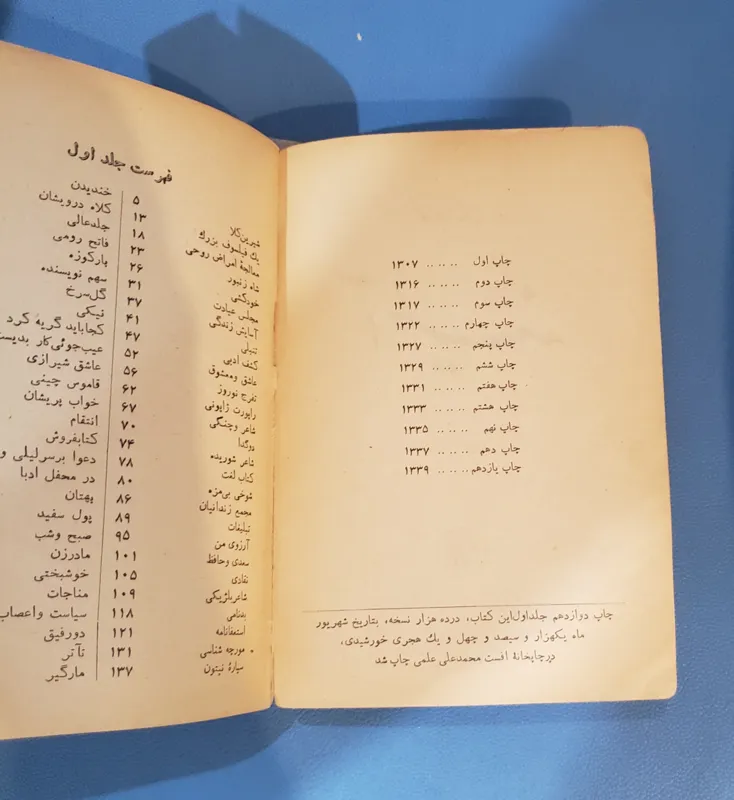 چاپ اول .. .. .. ۱۳۰۷
چاپ دوم .. .. .. ۱۳۱۶
چاپ سوم .. .. .. ۱۳۱۷
چاپ چهارم .. .. .. ۱۳۲۲
چاپ پنجم .. .. .. ۱۳۲۷
چاپ ششم .. .. .. ۱۳۲۹
چاپ هفتم .. .. .. ۱۳۳۱
چاپ هشتم .. .. .. ۱۳۳۳
چاپ نهم .. .. .. ۱۳۳۵
چاپ دهم .. .. .. ۱۳۳۷
چاپ یازدهم .. .. .. ۱۳۳۹
چاپ دوازدهم جلداول‌این کتاب، درده هزار نسخه، بتاریخ شهریور
ماه یکهزار و سیصد و چهل و یك هجری خورشیدی،
درچاپخانهٔ افست محمدعلی علمی چاپ شد
فهرست جلد اول
شیرین‌کلا ۵ خندیدن
یك فیلسوف بزرك ۱۳ کلاه درویشان
معالجهٔ امراض روحی ۱۸ جلدعالی
شاه زنبور ۲۳ فاتح رومی
خودکشی ۲۶ پارکوزه
مجلس عیادت ۳۱ سهم نویسنده
آسایش زندگی ۳۷ گل‌سرخ
تنبلی ۴۱ نیکی
کتف ادبی ۴۷ کجاباید گریه کرد
عاشق ومعشوق ۵۲ عیب‌جوئی‌کار بدیست
تفرج نوروز ۵۶ عاشق شیرازی
راپورت ژاپونی ۶۲ قاموس چینی
شاعر وجنگی ۶۷ خواب پریشان
دوگدا ۷۰ انتقام
شاعر شوریده ۷۴ کتابفروش
کتاب لغت ۷۸ دعوا برسرلیلی و
شوخی بی‌مزه ۸۰ در محفل ادبا
مجمع زندانیان ۸۶ بهتان
تبلیغات ۸۹ پول سفید
آرزوی من ۹۵ صبح وشب
سعدی وحافظ ۱۰۱ مادرزن
نقادی ۱۰۵ خوشبختی
شاعربلژیکی ۱۰۸ مناجات
بدنامی ۱۱۸ سیاست واعصاب
استعفانامه ۱۲۱ دورفیق
مورچه شناسی ۱۳۱ تآتر
سیارهٔ نپتون ۱۳۷ مارگیر